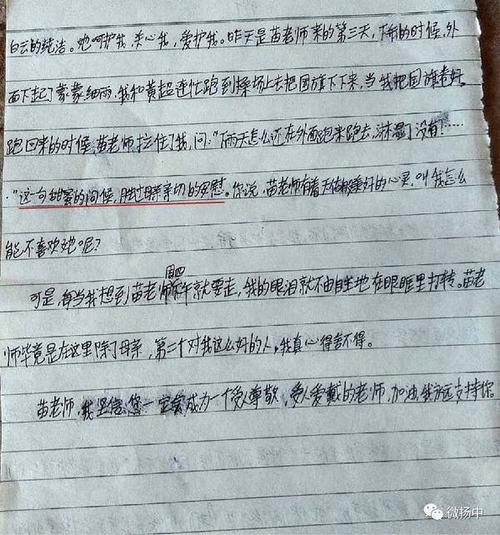 白云的纯洁。她呵护我,关心我,爱护我。昨天是苗老师来的第三天,下午的时候,外
面下起了蒙蒙细雨,我和黄超连忙跑到操场上去把国旗下下来,当我把国旗卷好
跑回来的时候,苗老师拉住了我,问:"下雨天怎么还在外面跑来跑去,淋湿了没有!……
"这句甜蜜的问候,胜过母亲亲切的安慰。你说,苗老师有着天使般美好的心灵,叫我怎么
能不喜欢她呢?
可是,每当我想到苗老师周四下午就要走,我的眼泪就不由自主地在眼眶里打转。苗老
师毕竟是在这里除了母亲,第二个对我这么好的人,我真心得舍不得。
苗老师,我坚信您一定会成为一个受人尊敬,受人爱戴的老师,加油我永远支持你
微扬中